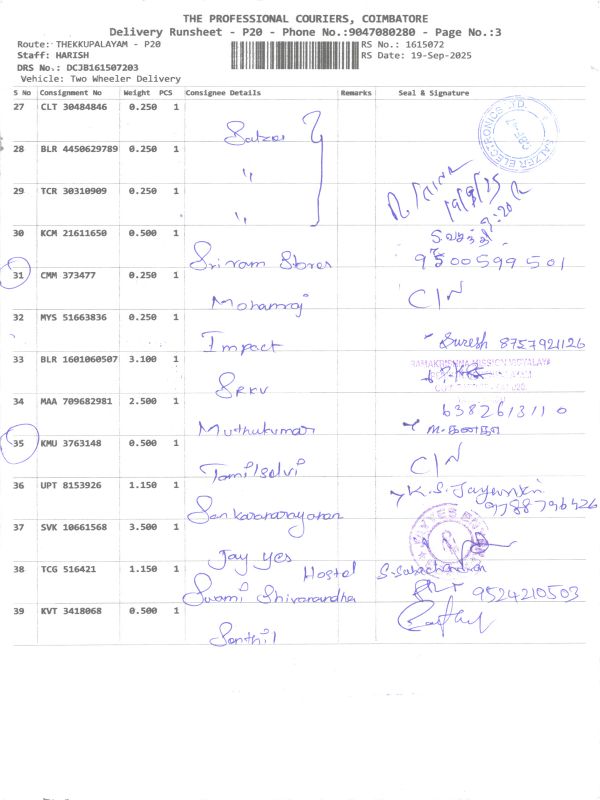 THE PROFESSIONAL COURIERS, COIMBATORE
Delivery Runsheet - P20 - Phone No.:9047080280 - Page No.:3
Route: THEKKUPALAYAM - P20
RS No.: 1615072
Staff: HARISH
RS Date: 19-Sep-2025
DRS No.: DCJB161507203
Vehicle: Two Wheeler Delivery
S No Consignment No Weight PCS Consignee Details Remarks Seal & Signature
27 CLT 30484846 0.250 1 Salzer
SALZER ELECTRONICS LTD.
28 BLR 4450629789 0.250 1 "
29 TCR 30310909 0.250 1 "
19/9/25
9:20
30 KCM 21611650 0.500 1 Sriram Stores
9500599501
31 CMM 373477 0.250 1 Mohanraj C/N
32 MYS 51663836 0.250 1 Impact Suresh 8757921126
33 BLR 1601060507 3.100 1 SRKV
RAMAKRISHNA MISSION VIDYALAYA
34 MAA 709682981 2.500 1 Muthukumar
6382613110
35 KMU 3763148 0.500 1 Tamilselvi C/N
36 UPT 8153926 1.150 1 Sankaranarayanan
9788796426
37 SVK 10661568 3.500 1 Jay yes
38 TCG 516421 1.150 1 Swami Shivanandha Hostel
9524210503
39 KVT 3418068 0.500 1 Senthil